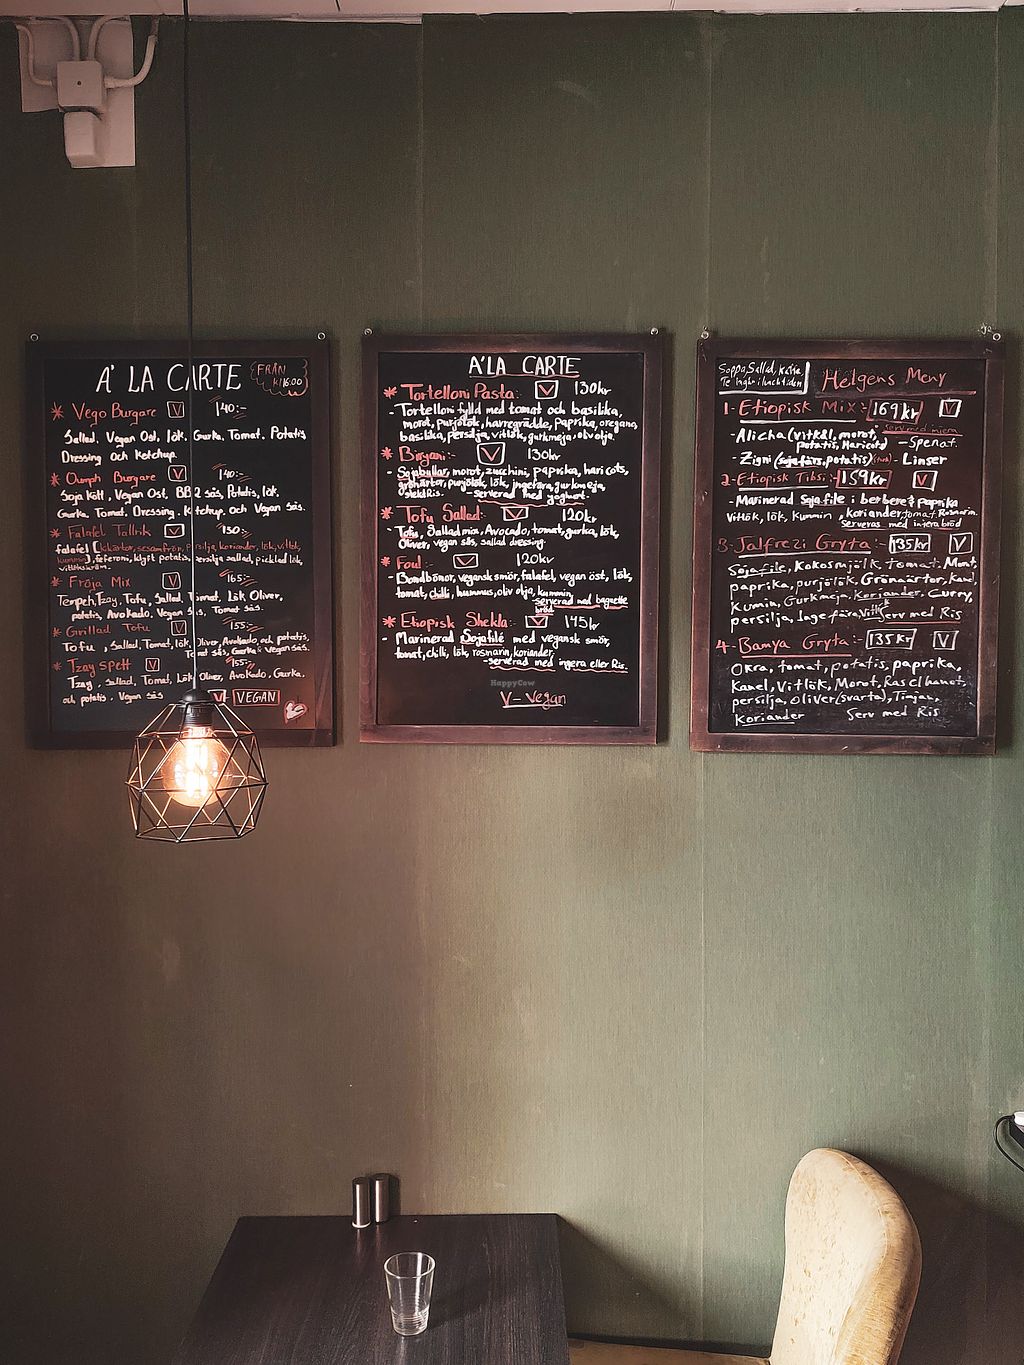 A' LA CARTE
FRÅN
kl 16:00
* Vego Burgare V 140:-
Sallad, Vegan Ost, lök, Gurka, Tomat, Potatis
Dressing och Ketchup.
* Oumph Burgare V 140:-
Soja Kött, Vegan Ost, BBQ sås, Potatis, lök,
Gurka, Tomat, Dressing, Ketchup och Vegan sås.
* Falafel Tallrik V 130:-
falafel (kikärtor, sesamfrön, persilja, koriander, lök, vitlök,
kummin), feferoni, klyft potatis, persilja sallad, pickled lök,
vitlökskräm.
* Fröja Mix V 165:-
Tempeh, Tzay, Tofu, Sallad, Tomat, Lök Oliver,
potatis, Avokado, Vegan sås, Tomat sås.
* Grillad Tofu V 155:-
Tofu, Sallad, Tomat, lök, Oliver, Avokado, och potatis,
Tomat sås, Gurka & vegan sås.
* Tzay spett V 155:-
Tzay, Sallad, Tomat, Lök, Oliver, Avokado, Gurka,
och potatis, Vegan sås
V VEGAN
A'LA CARTE
* Tortelloni Pasta:- V 130kr
- Tortelloni fylld med tomat och basilika,
morot, purjolök, havregrädde, paprika, oregano,
basilika, persilja, vitlök, gurkmeja, olivolja.
* Biryani:- V 130kr
- Sojabullar, morot, zucchini, paprika, haricots,
grönärtor, purjolök, lök, ingefära, gurkmeja,
stekt Ris. - serverad med yoghurt.
* Tofu Sallad:- V 120kr
- Tofu, Salladmix, Avocado, tomat, gurka, lök,
Oliver, vegan sås, sallad dressing.
* Foul:- V 120kr
- Bondbönor, vegansk smör, falafel, vegan öst, lök,
tomat, chilli, hummus, oliv olja, kummin,
- serverad med baguette
bröd
* Etiopisk Shekla:- V 145kr
- Marinerad Sojafilé med vegansk smör,
tomat, chili, lök, rosmarin, koriander,
- serverad med injera eller Ris.
HappyCow
V - Vegan
Soppa, Sallad, kaffe,
Te Ingår i lunchtiden
Helgens Meny
1- Etiopisk Mix:- 169kr V
serverad med injera
- Alicha (vitkål, morot,
potatis, Haricots) - Spenat
- Zigni (sojafärs, potatis) - Linser
2- Etiopisk Tibsi:- 159kr V
- Marinerad Sojafile i berbere, paprika
vitlök, lök, Kummin, koriander, tomat, Rosmarin.
Serveras med injera bröd
3- Jalfrezi Gryta:- 135kr V
Sojafile, Kokosmjölk, tomat, Morot,
paprika, purjolök, Grönärtor, Kanel,
Kumin, Gurkmeja, Koriander, Curry,
persilja, Ingefära, Vitlök Serv med Ris
4- Bamya Gryta:- 135kr V
Okra, tomat, potatis, paprika,
Kanel, Vitlök, Morot, Ras el hanot,
persilja, Oliver (svarta), Timjan,
Koriander Serv med Ris